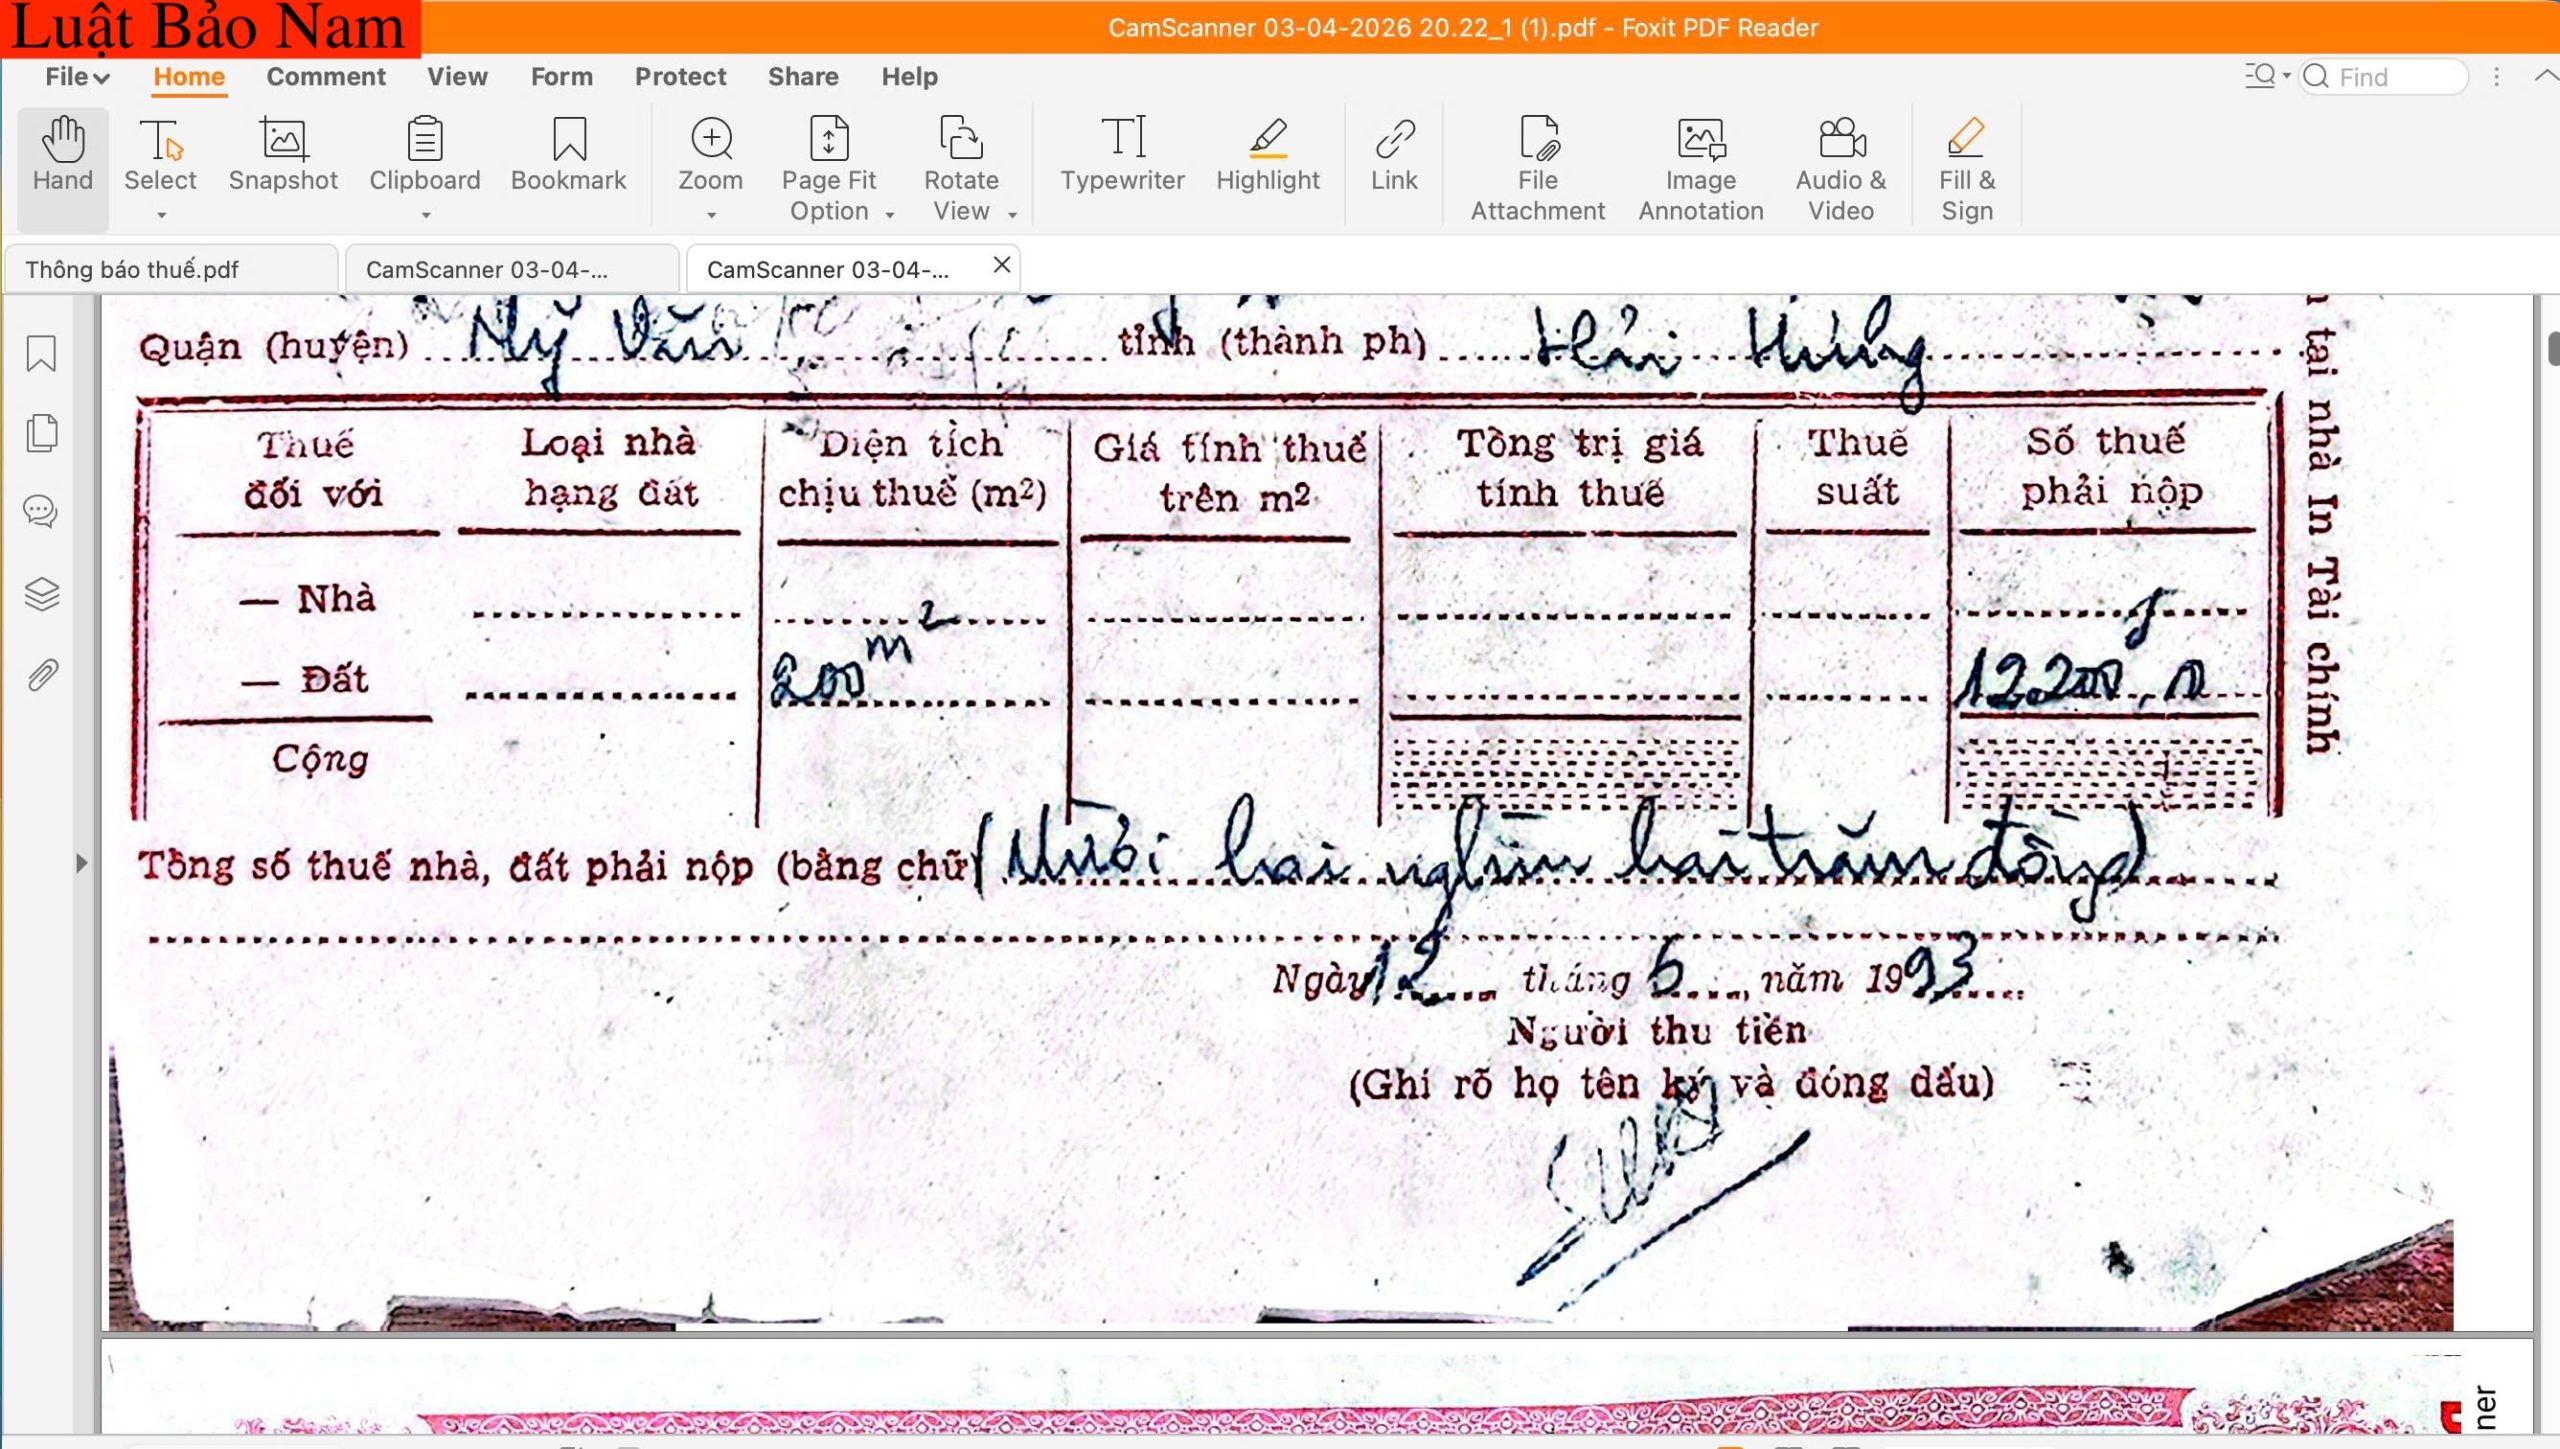 Luật Bảo Nam
CamScanner 03-04-2026 20.22_1 (1).pdf - Foxit PDF Reader
File Home Comment View Form Protect Share Help
Find
Hand Select Snapshot Clipboard Bookmark Zoom Page Fit Option Rotate View Typewriter Highlight Link File Attachment Image Annotation Audio & Video Fill & Sign
Thông báo thuế.pdf CamScanner 03-04-... CamScanner 03-04-...
Quận (huyện) Mỹ Văn tỉnh (thành ph) Hải Hưng
Thuế đối với Loại nhà hạng đất Diện tích chịu thuế (m2) Giá tính thuế trên m2 Tổng trị giá tính thuế Thuế suất Số thuế phải nộp
— Nhà
— Đất 200 m2 12.200,
Cộng
Tổng số thuế nhà, đất phải nộp (bằng chữ) (Mười hai nghìn hai trăm đồng)
Ngày 12 tháng 6, năm 1993
Người thu tiền
(Ghi rõ họ tên ký và đóng dấu)
tại nhà In Tài chính
ner